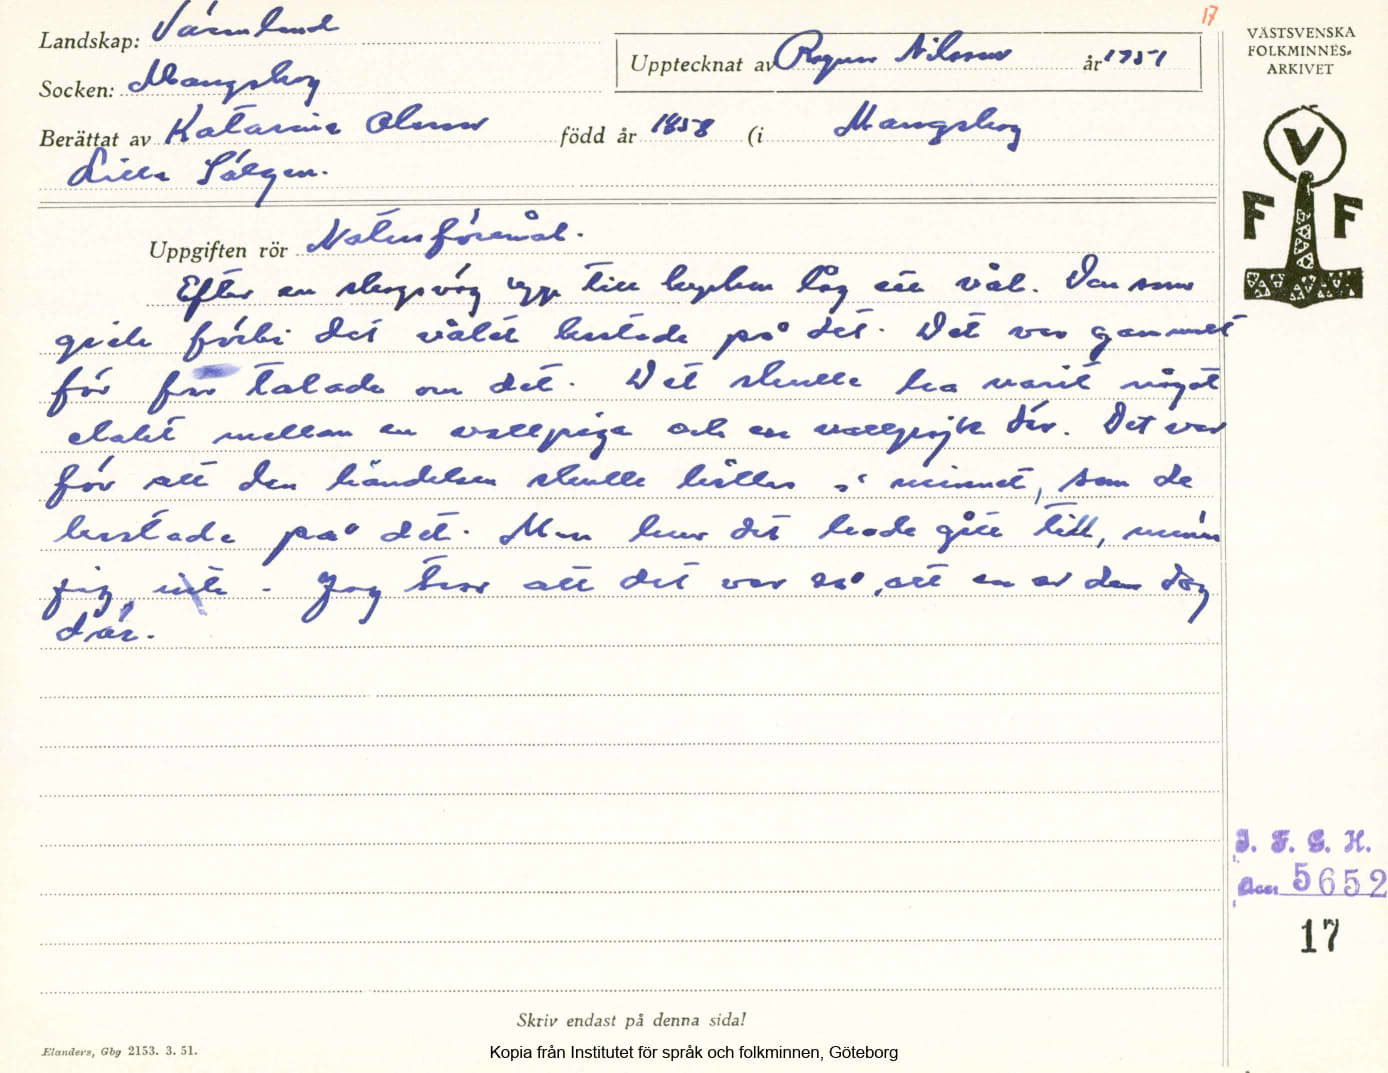 17
Landskap: Värmland
VÄSTSVENSKA
FOLKMINNES-
ARKIVET
Upptecknat av Ragnar Nilsson år 1951
Socken: Mangskog
Berättat av Katarina Olsson född år 1858 (i Mangskog
Lilla Sälgen.
V
F F
Uppgiften rör Naturföremål.
Efter en skogsväg upp till kyrkan låg ett vål. Den som
gick förbi det vålet kastade på det. Det var gammalt
för far talade om det. Det skulle ha varit något
elakt mellan en vallpiga och en vallpojke där. Det var
för att den händelsen skulle hållas i minnet, som de
kastade på det. Men hur det hade gått till, minns
jag inte. Jag tror att det var så, att en av dem dog
där.
I. F. G. H.
Acc. 5652
17
Skriv endast på denna sida!
Elanders, Gbg 2153. 3. 51.
Kopia från Institutet för språk och folkminnen, Göteborg